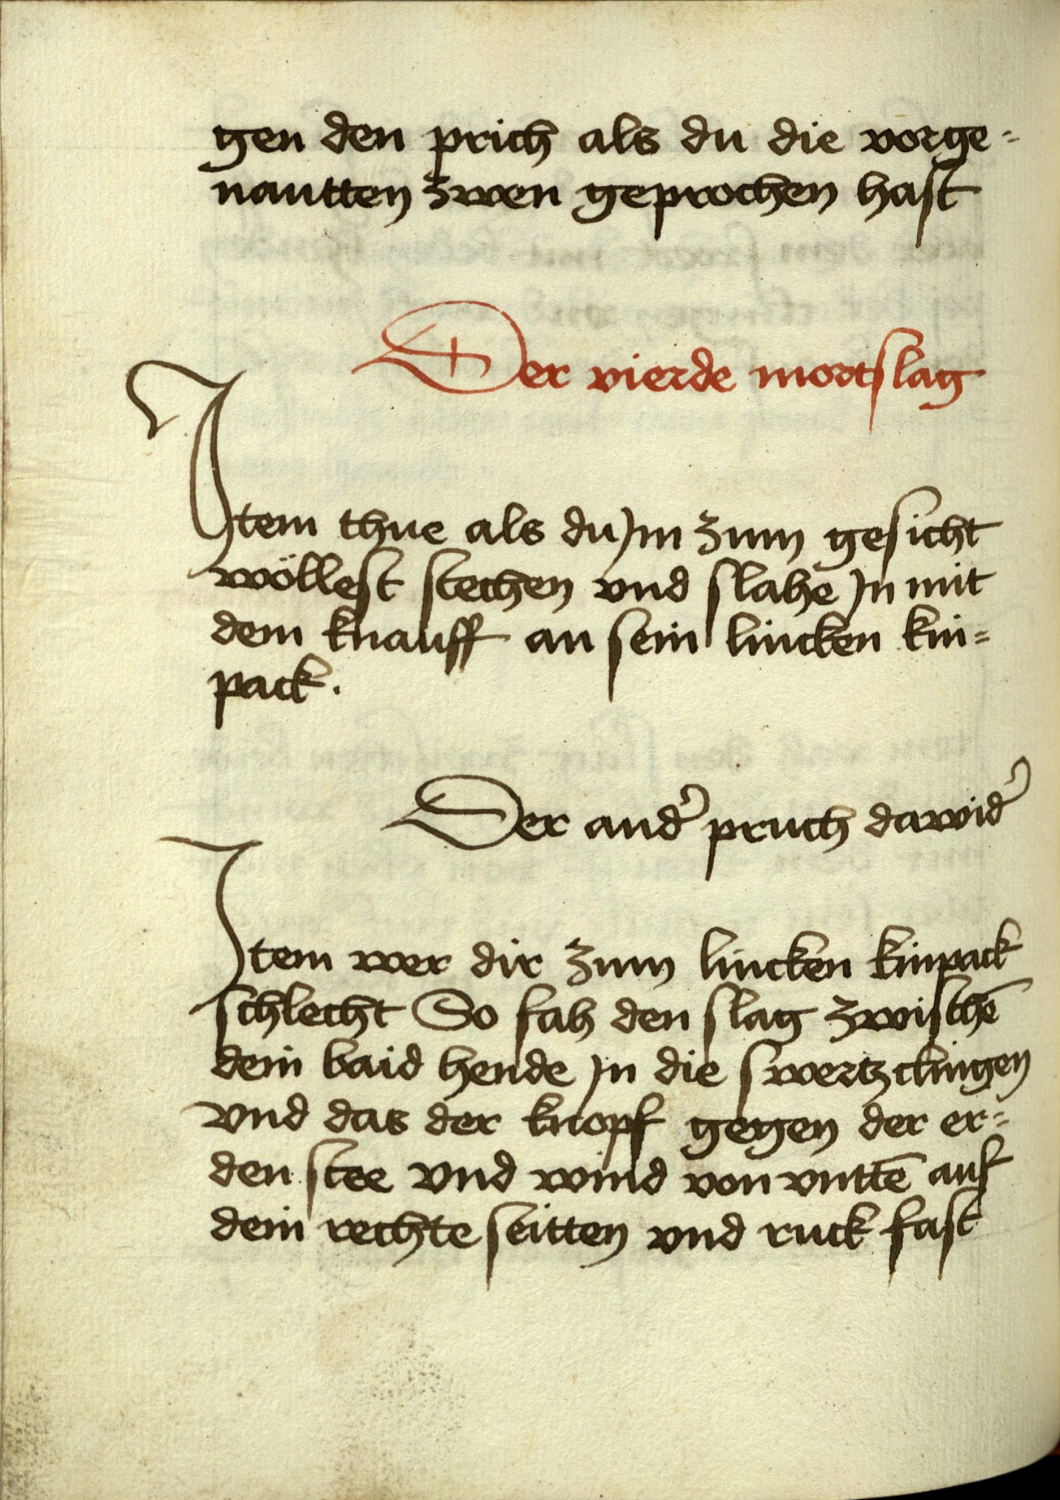 gen den prich als du die vorge-
nantten zwen geprochen hast
Der vierde mortslag
Item thue als du jn zum gesicht
wöllest stechen vnd slahe jn mit
dem knauff an sein lincken kin-
pack.
Der and' pruch dawid'
Item wer dir zum lincken kinpack
schlecht So fah den slag zwischē
dein baid hende jn die swertzclingen
vnd das der knopf gegen der er-
den stee vnd wind von vnttē auf
dein rechte seitten vnd ruck fast